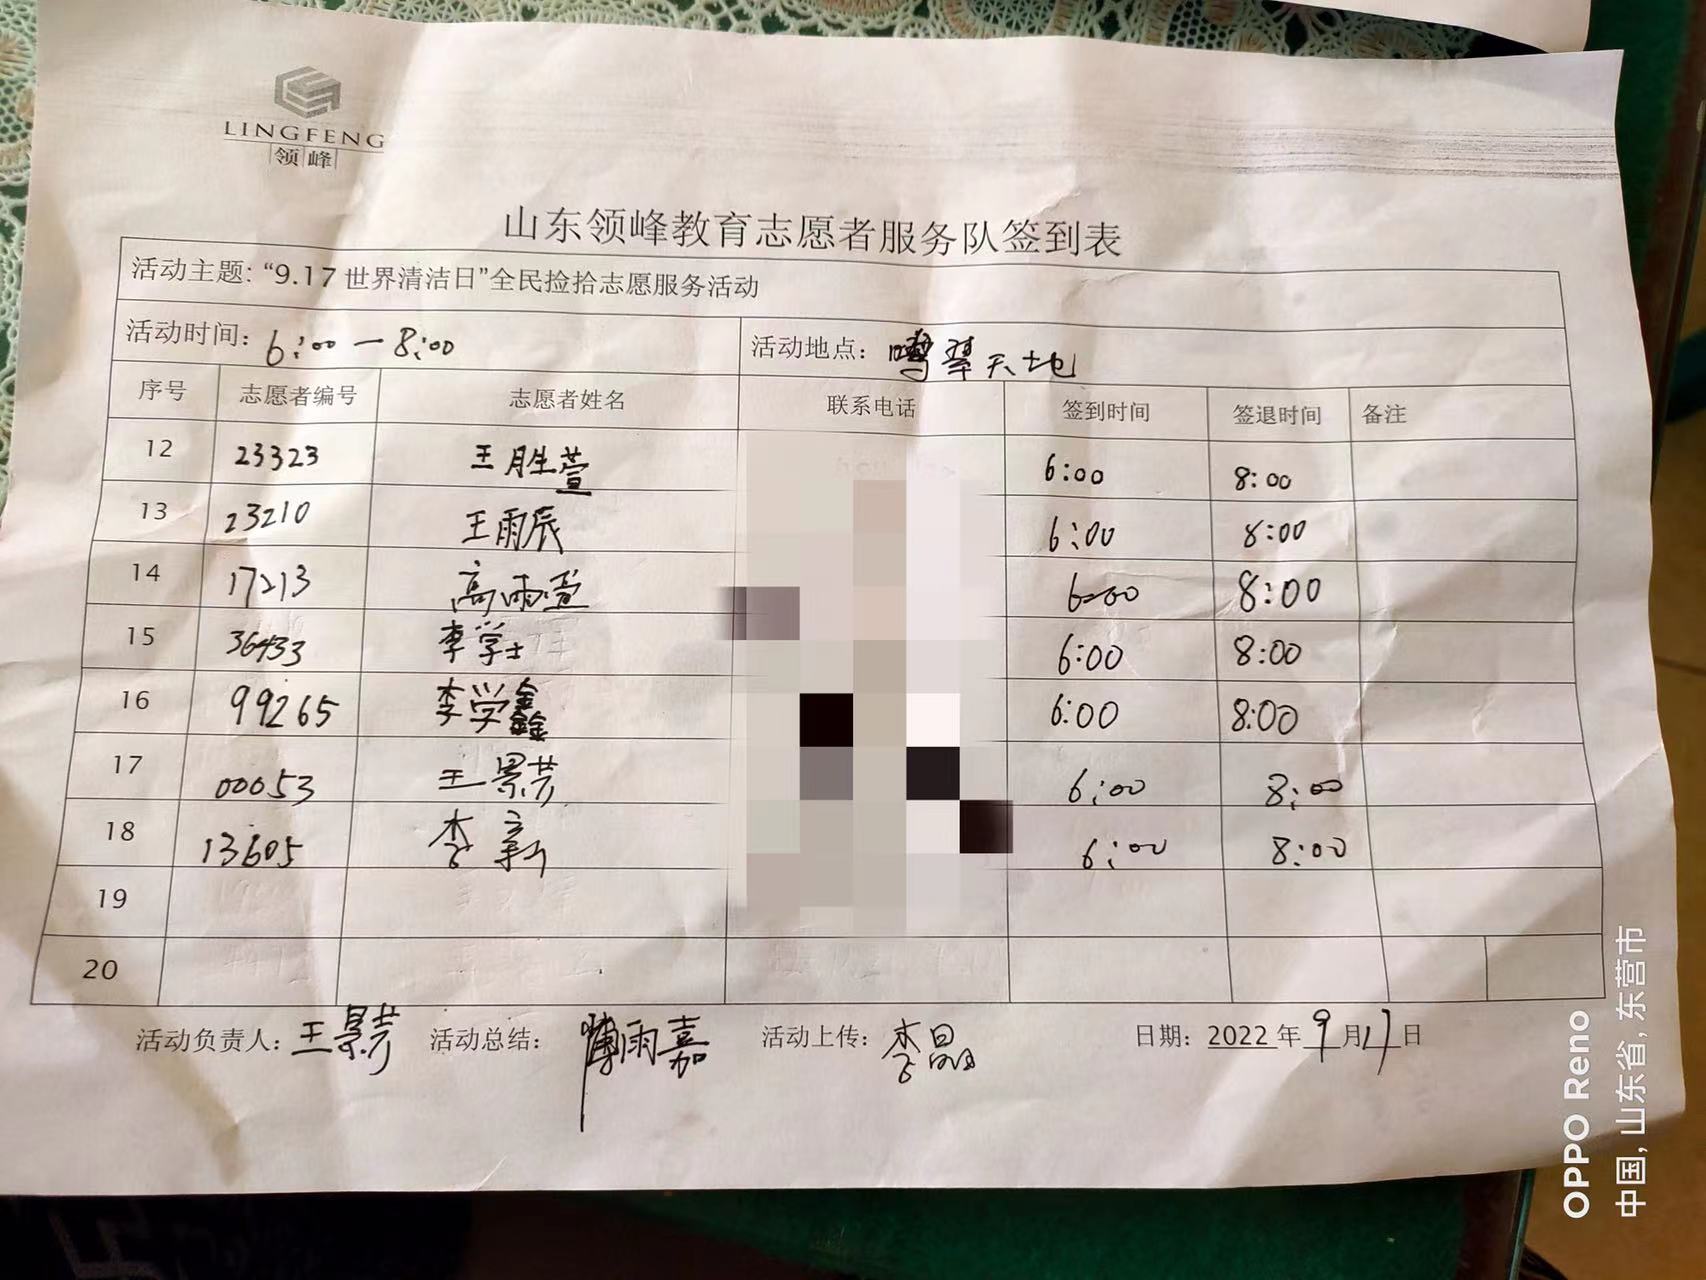 LINGFENG
领峰
山东领峰教育志愿者服务队签到表
活动主题: “9.17 世界清洁日”全民捡拾志愿服务活动
活动时间: 6:00 — 8:00 活动地点: 翠天地
序号 志愿者编号 志愿者姓名 联系电话 签到时间 签退时间 备注
12 23323 王胜萱 6:00 8:00
13 23210 王雨辰 6:00 8:00
14 17213 高雨萱 6:00 8:00
15 36433 李学士 6:00 8:00
16 99265 李学鑫 6:00 8:00
17 00053 王景芳 6:00 8:00
18 13605 李新 6:00 8:00
19
20
活动负责人: 王景芳 活动总结: 雨嘉 活动上传: 李晶 日期: 2022 年 9 月 17 日
OPPO Reno
中国, 山东省, 东营市